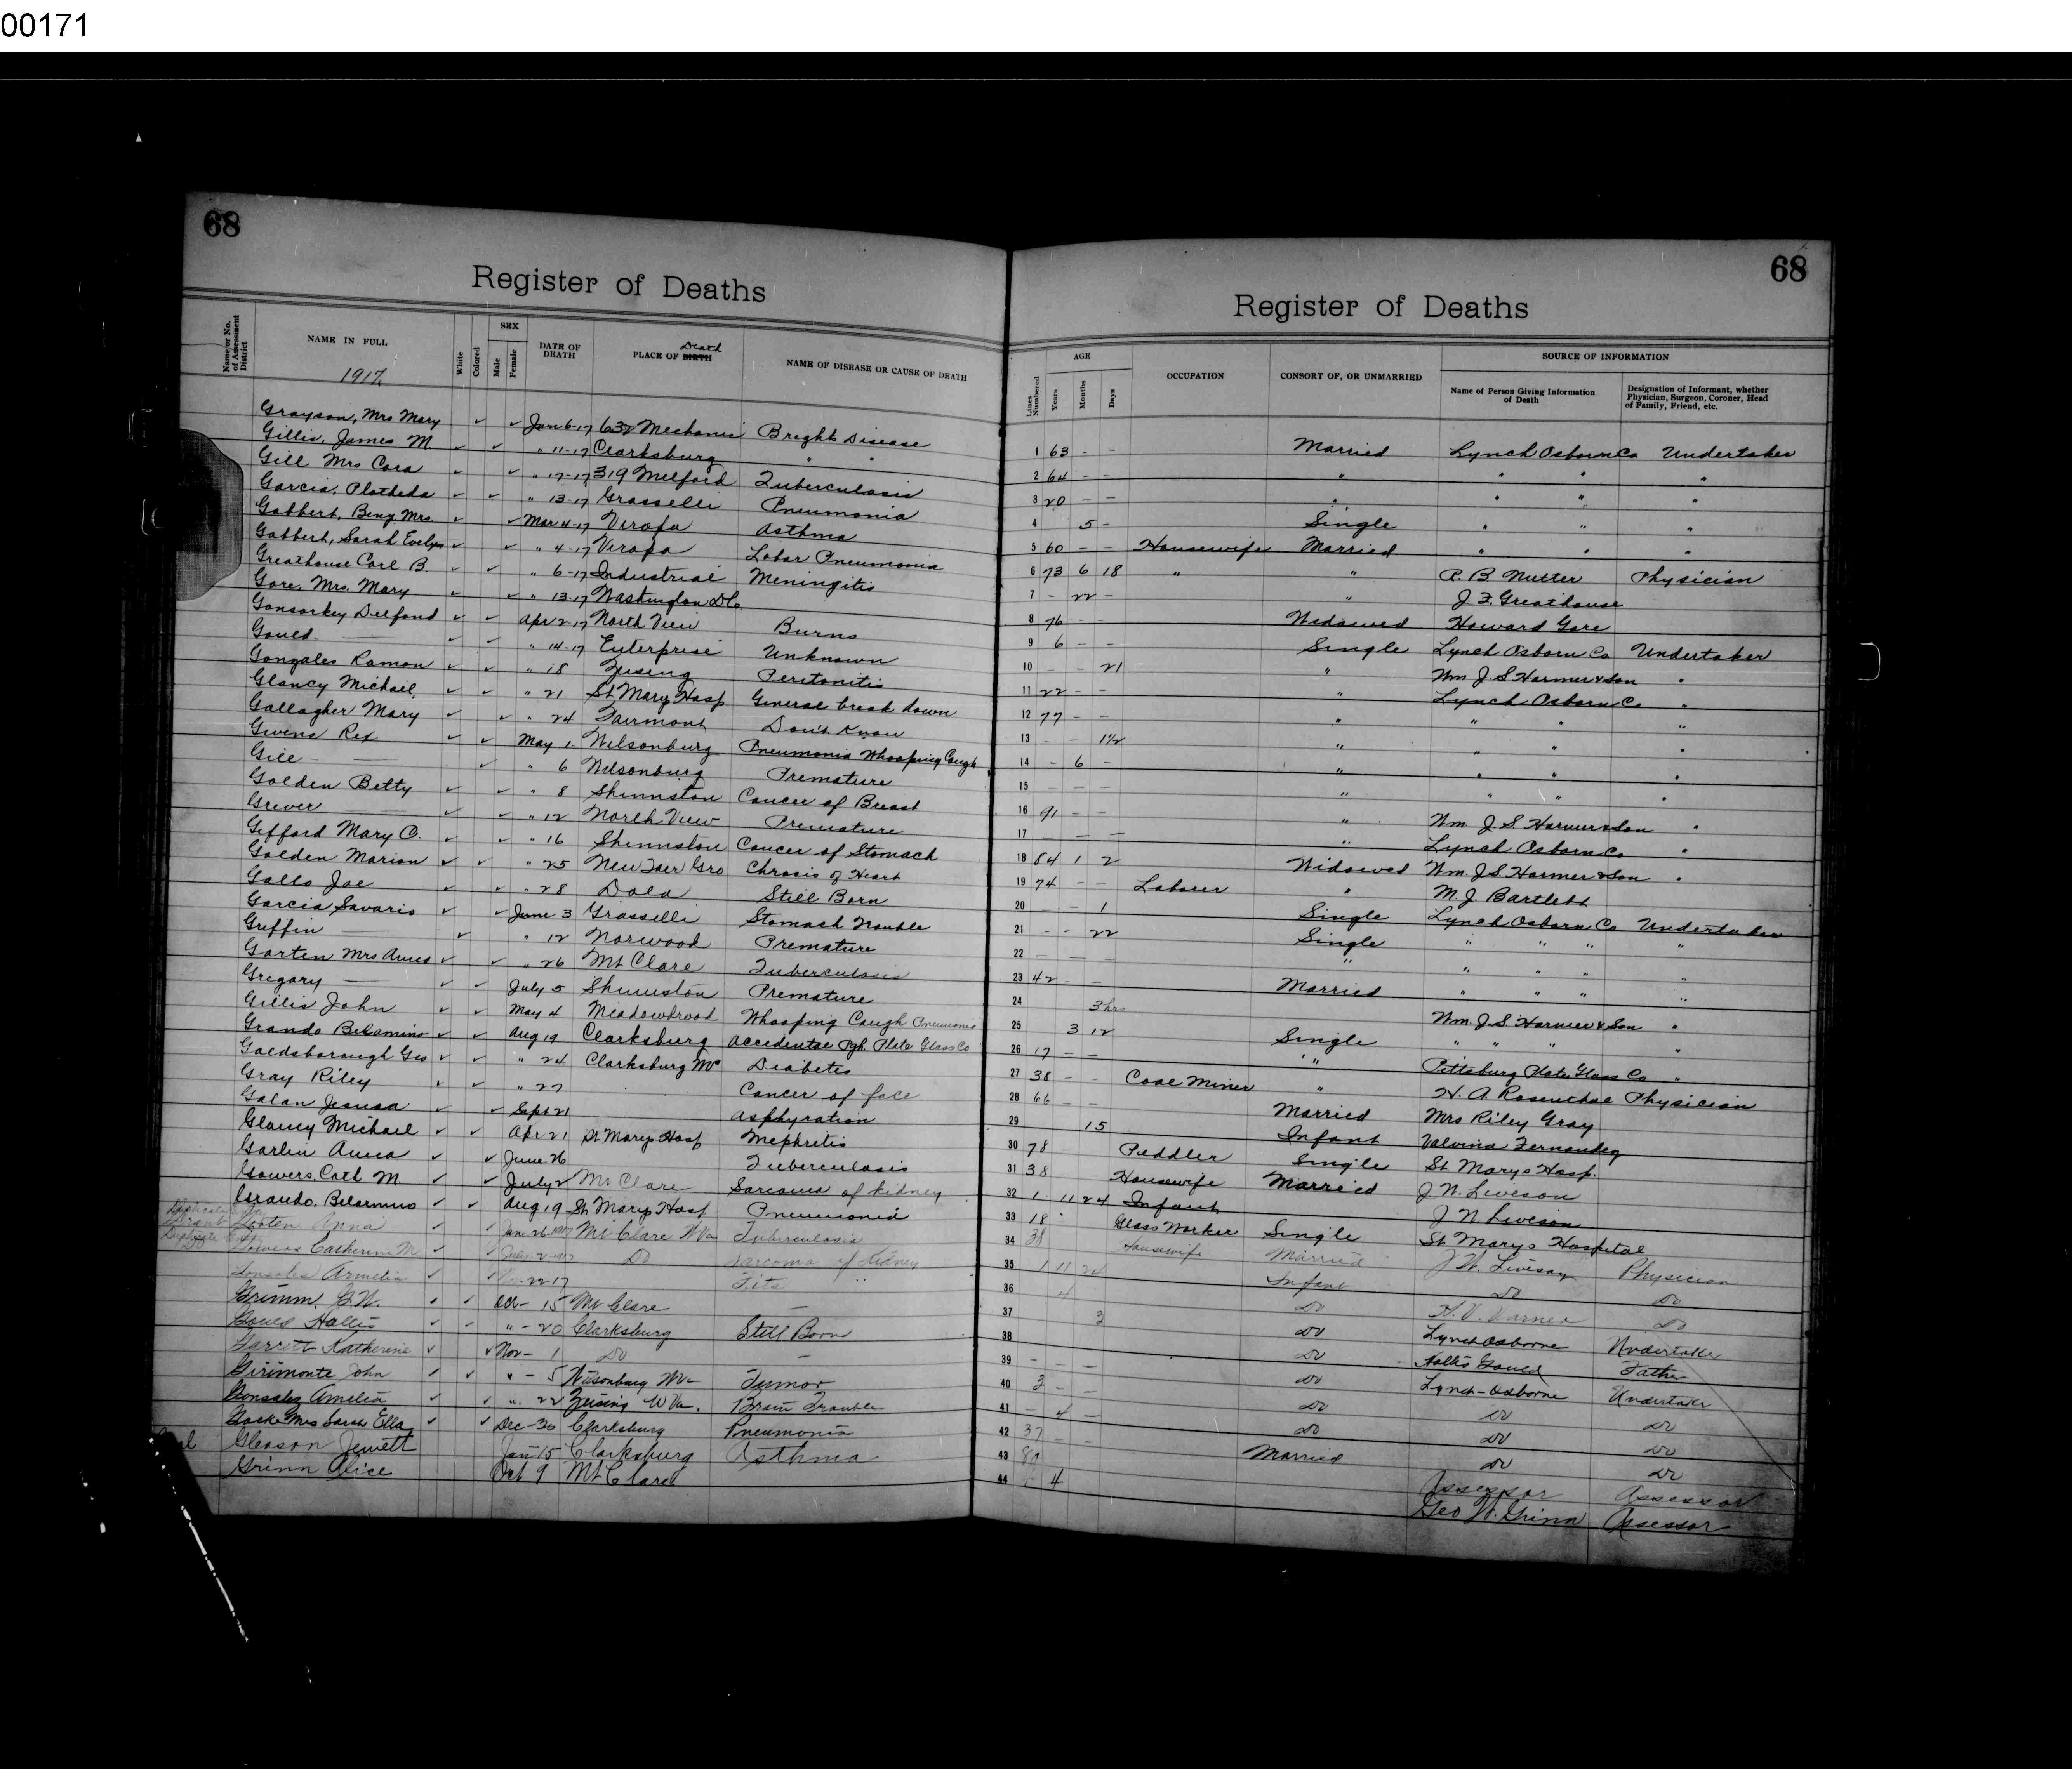 00171
68
Register of Deaths
Name or No. of Assessment District
NAME IN FULL
1917
White
Colored
SEX
Male
Female
DATE OF DEATH
PLACE OF BIRTH Death
NAME OF DISEASE OR CAUSE OF DEATH
Grayson, Mrs Mary Jan 6-17 632 Mechanic Brights Disease
Gillis, James M " 11-17 Clarksburg " "
Gill Mrs Cora " 17-17 319 Milford Tuberculosis
Garcia, " 13-17 Grasselli Pneumonia
Gabbert, Benj Mrs. Mar 4-17 Viropa Asthma
Gabbert, Sarah Evelyn " 4-17 Viropa Lobar Pneumonia
Greathouse Carl B. " 6-17 Industrial Meningitis
Gore, Mrs. Mary " 13-17 Washington D.C.
Gonsorkey Delford Apr 2-17 North View Burns
Gould " 14-17 Enterprise Unknown
Gonzales Ramon " 18 Zeising Peritonitis
Glancy Michail " 21 St Mary Hosp General break down
Gallagher Mary " 24 Fairmont Don't Know
Givens Rex May 1 Wilsonburg Pneumonia Whooping Cough
Gill " 6 Wilsonburg Premature
Golden Betty " 8 Shinnston Cancer of Breast
Grever " 12 North View Premature
Gifford Mary C. " 16 Shinnston Cancer of Stomach
Golden Marion " 25 New Haven of Heart
Gallo Joe " 28 Dola Still Born
Garcia Savario June 3 Grasselli Stomach Trouble
Griffin " 12 Norwood Premature
Garten Mrs Annes " 26 Mt Clare Tuberculosis
Gregory July 5 Shinnston Premature
Gillis John May 4 Meadowbrook Whooping Cough Pneumonia
Grando Belarmino Aug 19 Clarksburg Accidental Pgh Plate Glass Co
Goldsborough Geo " 24 Clarksburg Diabetes
Gray Riley " 27 Cancer of face
Galan Sept 21
Glancy Michael Apr 21 St Marys Hosp Nephritis
Garlin Anna June 26 Tuberculosis
Gowers Cath M. July 2 Mt Clare Sarcoma of kidney
Grando, Belarmino Aug 19 St Marys Hosp Pneumonia
Anna June 26 1917 Mt Clare W Va Tuberculosis
Catherine M July 2-1917 Do Sarcoma of kidney
Armelia 22-17 Fits "
Grimm, G.W. Oct- 15 Mt Clare
Gould Hollis " - 20 Clarksburg Still Born
Garrett Katherine Nov- 1 Do
Girimonte John " - 5 Wilsonburg WVa Tumor
Gonsalez Amelia " 22 Zeising W Va. Brain Trouble
Mrs Sarah Ella Dec-30 Clarksburg Pneumonia
Gleason Jewett Jan 15 Clarksburg Asthma
Grinn Alice Oct 9 Mt Clare
68
Register of Deaths
Lines Numbered
AGE
Years
Months
Days
OCCUPATION
CONSORT OF, OR UNMARRIED
SOURCE OF INFORMATION
Name of Person Giving Information of Death
Designation of Informant, whether Physician, Surgeon, Coroner, Head of Family, Friend, etc.
1 63 - - Married Lynch Osborn Co Undertaker
2 64 - - " " " "
3 20 - - " " " "
4 5 - Single " " "
5 60 - - Housewife Married " " "
6 73 6 18 " " P. B. Nutter Physician
7 - 22 - " J. F. Greathouse
8 76 - - Widowed Howard Gore
9 6 - - Single Lynch Osborn Co Undertaker
10 - - 21 " Wm J. S Harmer & Son "
11 22 - - " Lynch Osborn Co "
12 77 - - " " " "
13 - - 1½ " " " "
14 - 6 - " " " "
15 - - - " " " "
16 91 - - " Wm. J. S Harmer & Son "
17 - - - " Lynch Osborn Co "
18 84 1 2 Widowed Wm. J S Harmer & Son "
19 74 - - Laborer " M. J. Bartlett
20 - - 1 Single Lynch Osborn Co Undertaker
21 - - 22 Single " " " "
22 - - - " " " " "
23 42 - - Married " " " "
24 3 hrs Wm. J. S. Harmer & Son "
25 3 12 Single " " " "
26 17 - - " " Pittsburg Plate Glass Co "
27 38 - - Coal Miner " H. A. Rosenthal Physician
28 66 - - Married Mrs Riley Gray
29 15 Infant Valvina Fernandez
30 78 Peddler Single St Marys Hosp.
31 38 Housewife Married J W. Liveson
32 1 11 24 Infant J W Liveson
33 18 Glass Worker Single St Marys Hospital
34 38 Housewife Married J W. Livesay Physician
35 1 11 24 Infant Do Do
36 4 Do H. V. Varner Do
37 3 Do Lynch Osborne Undertaker
38 Do Hollis Gould Father
39 - - - Do Lynch-Osborne Undertaker
40 3 - - Do Do Do
41 - 4 - Do Do Do
42 37 - Married Do Do
43 80 Assessor Assessor
44 4 Geo W. Grinn Assessor